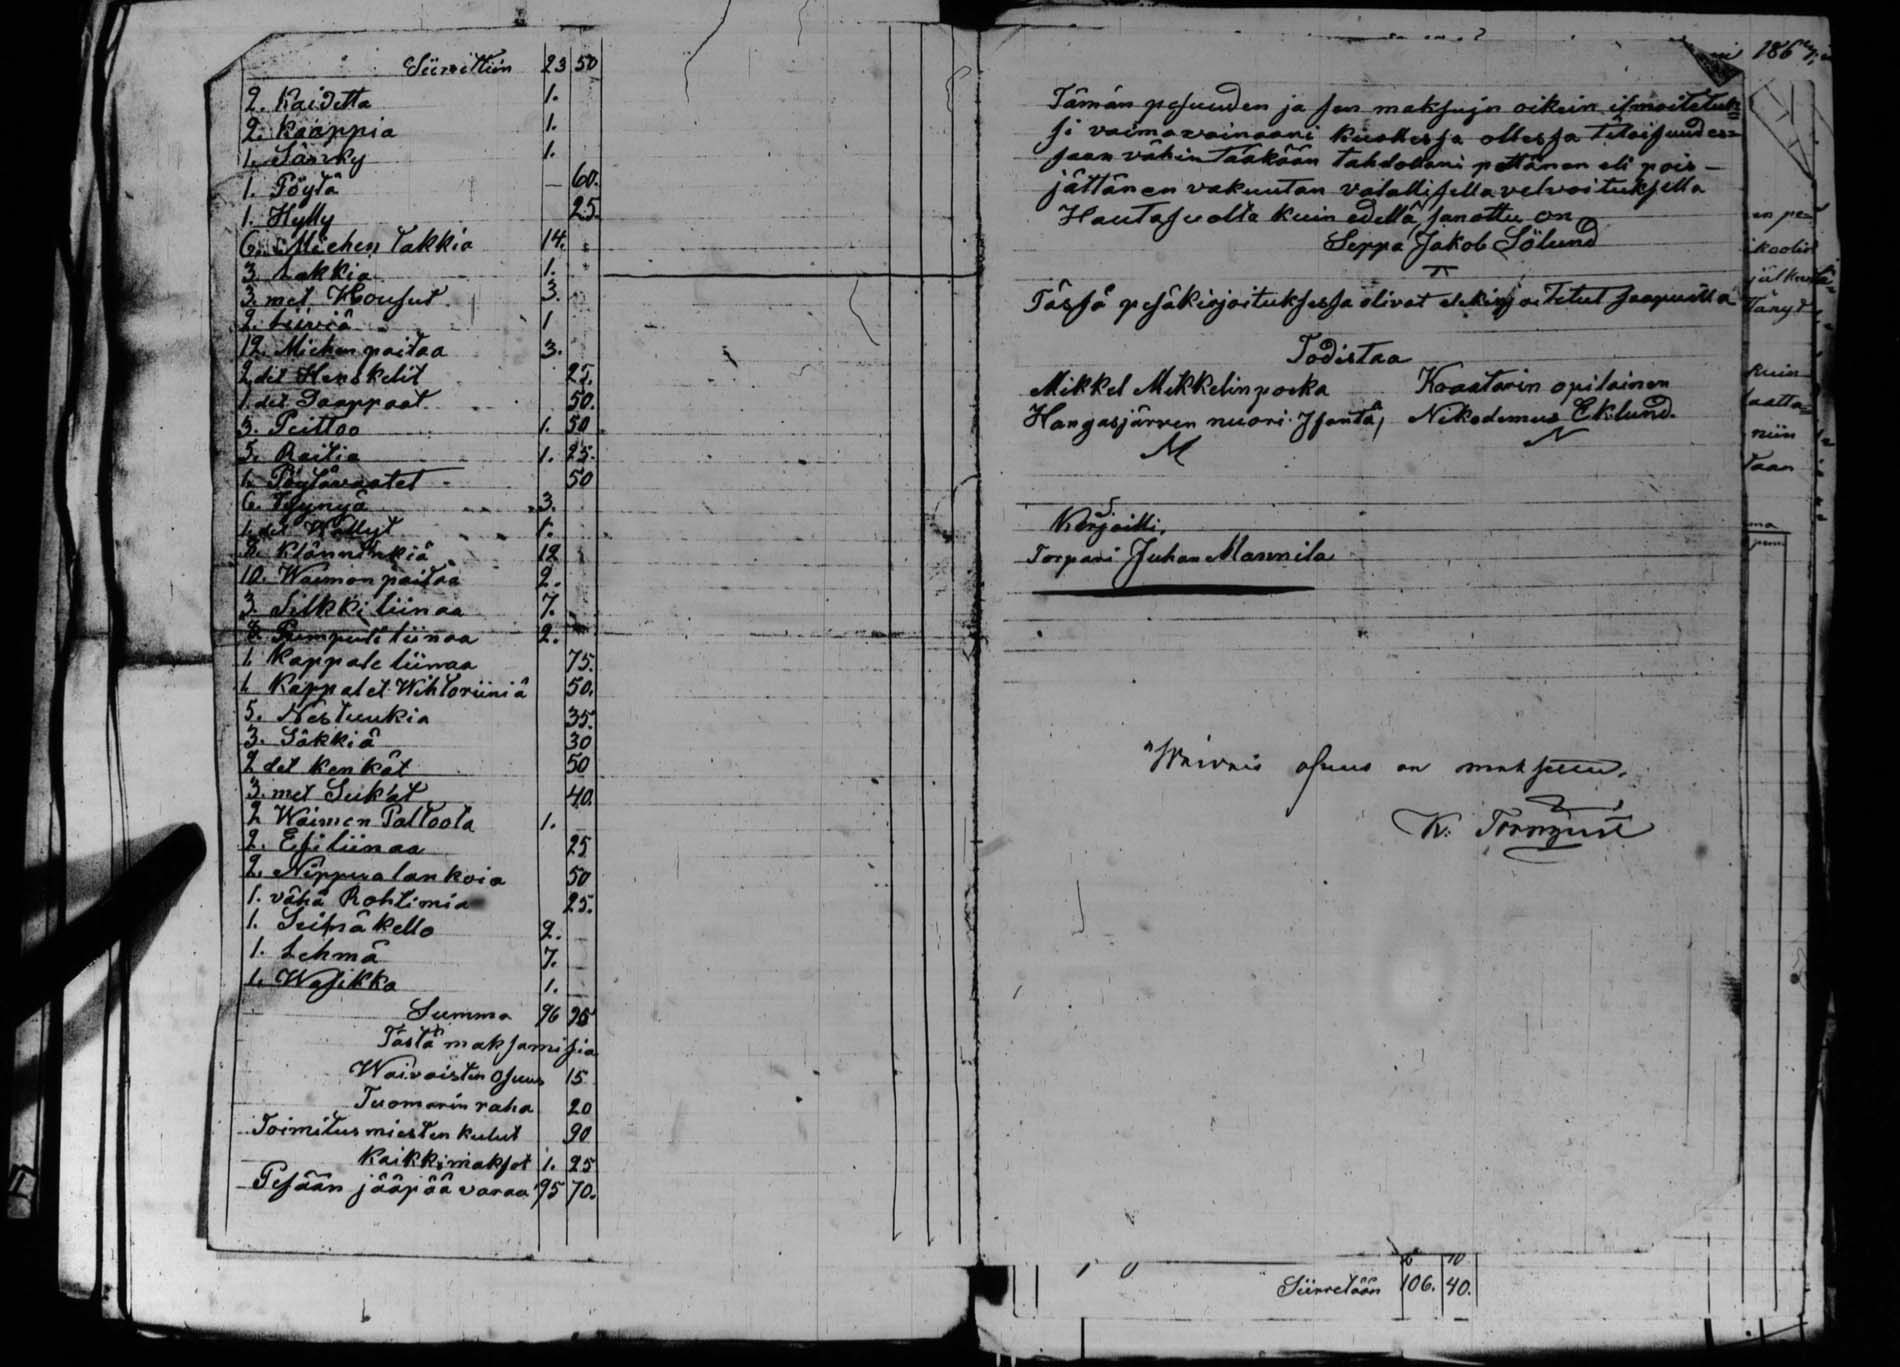 Siirrettiin 23 50
2. Kaidetta 1.
2. Kaappia 1.
1. Sänky 1.
1. Pöytä — 60.
1. Hylly 25.
6. Miehen takkia 14.
3. Lakkia 1.
3. met Housut 3.
2. Liiviä 1
12. Miehen paitaa 3.
2 det Henskelit 25.
1. det Saappaat 50.
3. Peittoo 1. 50
5. Raitia 1. 25.
1. Pöytävaatet 50
6. Tyynyä 3.
1. det Wällyt 1.
8. Klänninkiä 12
10. Waimon paitaa 2.
3. Silkki liinaa 7.
8. Pumpuli liinaa 2.
1. Kappale liinaa 75.
1. Kappalet Wihtoriiniä 50.
5. Nestuukia 35.
3. Säkkiä 30
2 det Kenkät 50
3. met Sukat 40.
2 Waimon Paltoota 1.
2. Esiliinaa 25
2. Nippua lankoia 50
1. vähä Rohtimia 25.
1. Seinäkello 2.
1. Lehmä 7.
1. Wasikka 1.
Summa 96 95
Tästä maksamisia
Waivaisten osuus 15
Tuomarin raha 20
Toimitusmiesten kulut 90
Kaikki maksot 1. 25
Pesään jääpää varaa 95 70.
186
Tämän pesuuden ja sen maksujn oikein ilmoitetuk=
si vaimovainaani kuollessa ollessa tilaisuudes=
saan vähintääkään tahdollani pettämän eli pois—
jättänen vakuutan valallisella velvoituksella
Hautasuolta kuin edellä sanottu on
Seppä Jakob Sölund
Tässä pesäkirjoituksessa olivat allekirjoitetut saapuilla
Todistaa
Mikkel Mikkelinpoika Kraatarin opilainen
Hangasjärven nuori Isäntä, Nikodemus Eklund.
M N
Kirjoitti,
Torpari Juhan Mannila
Waivais osuus on maksettu.
K. Tornquist
en pe=
ikoolin
jälkee
Tänyt
kuin
laatta=
niin
taan
Siirretään 106. 40.